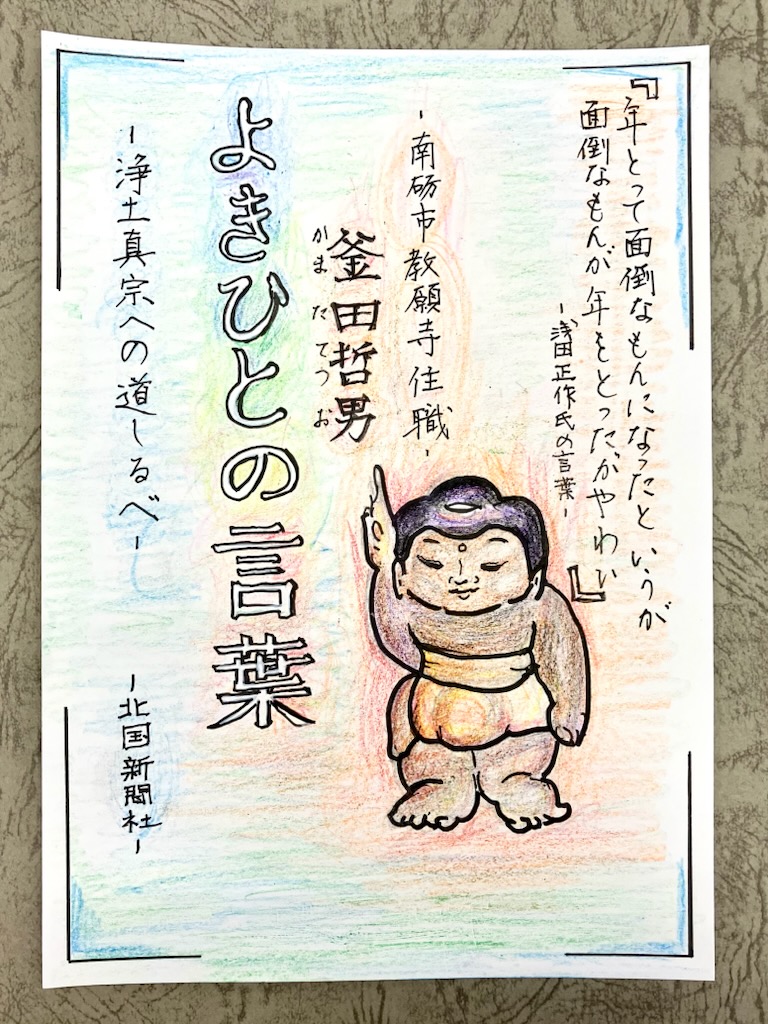 『年とって面倒なもんになったというが
面倒なもんが年をとったがやわい』
-浅田正作氏の言葉-
-南砺市教願寺住職-
釜田哲男
かまたてつお
よきひとの言葉
-浄土真宗への道しるべ-
-北国新聞社-